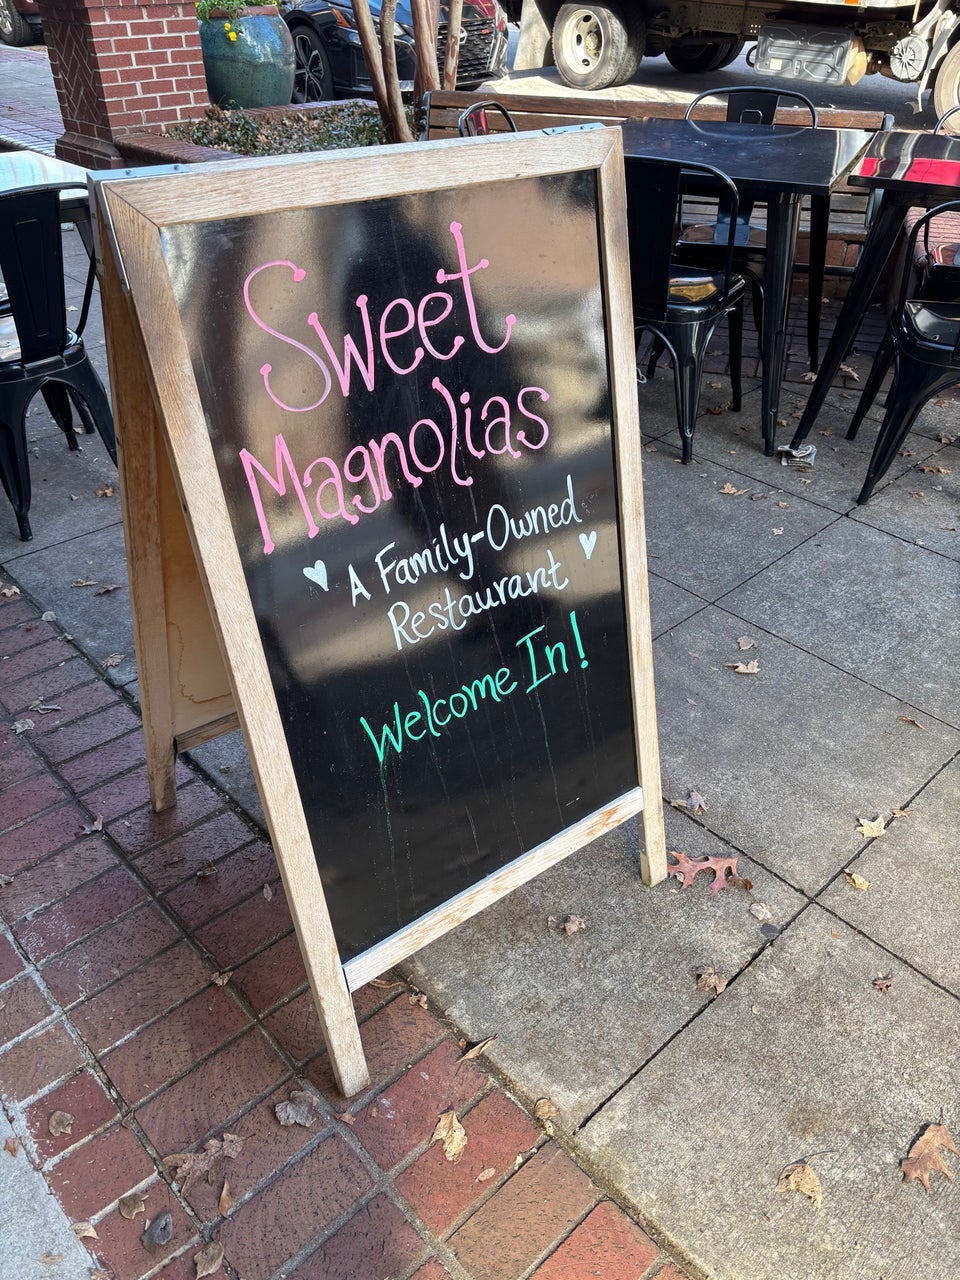 Sweet
Magnolias
A Family-Owned
Restaurant
Welcome In!